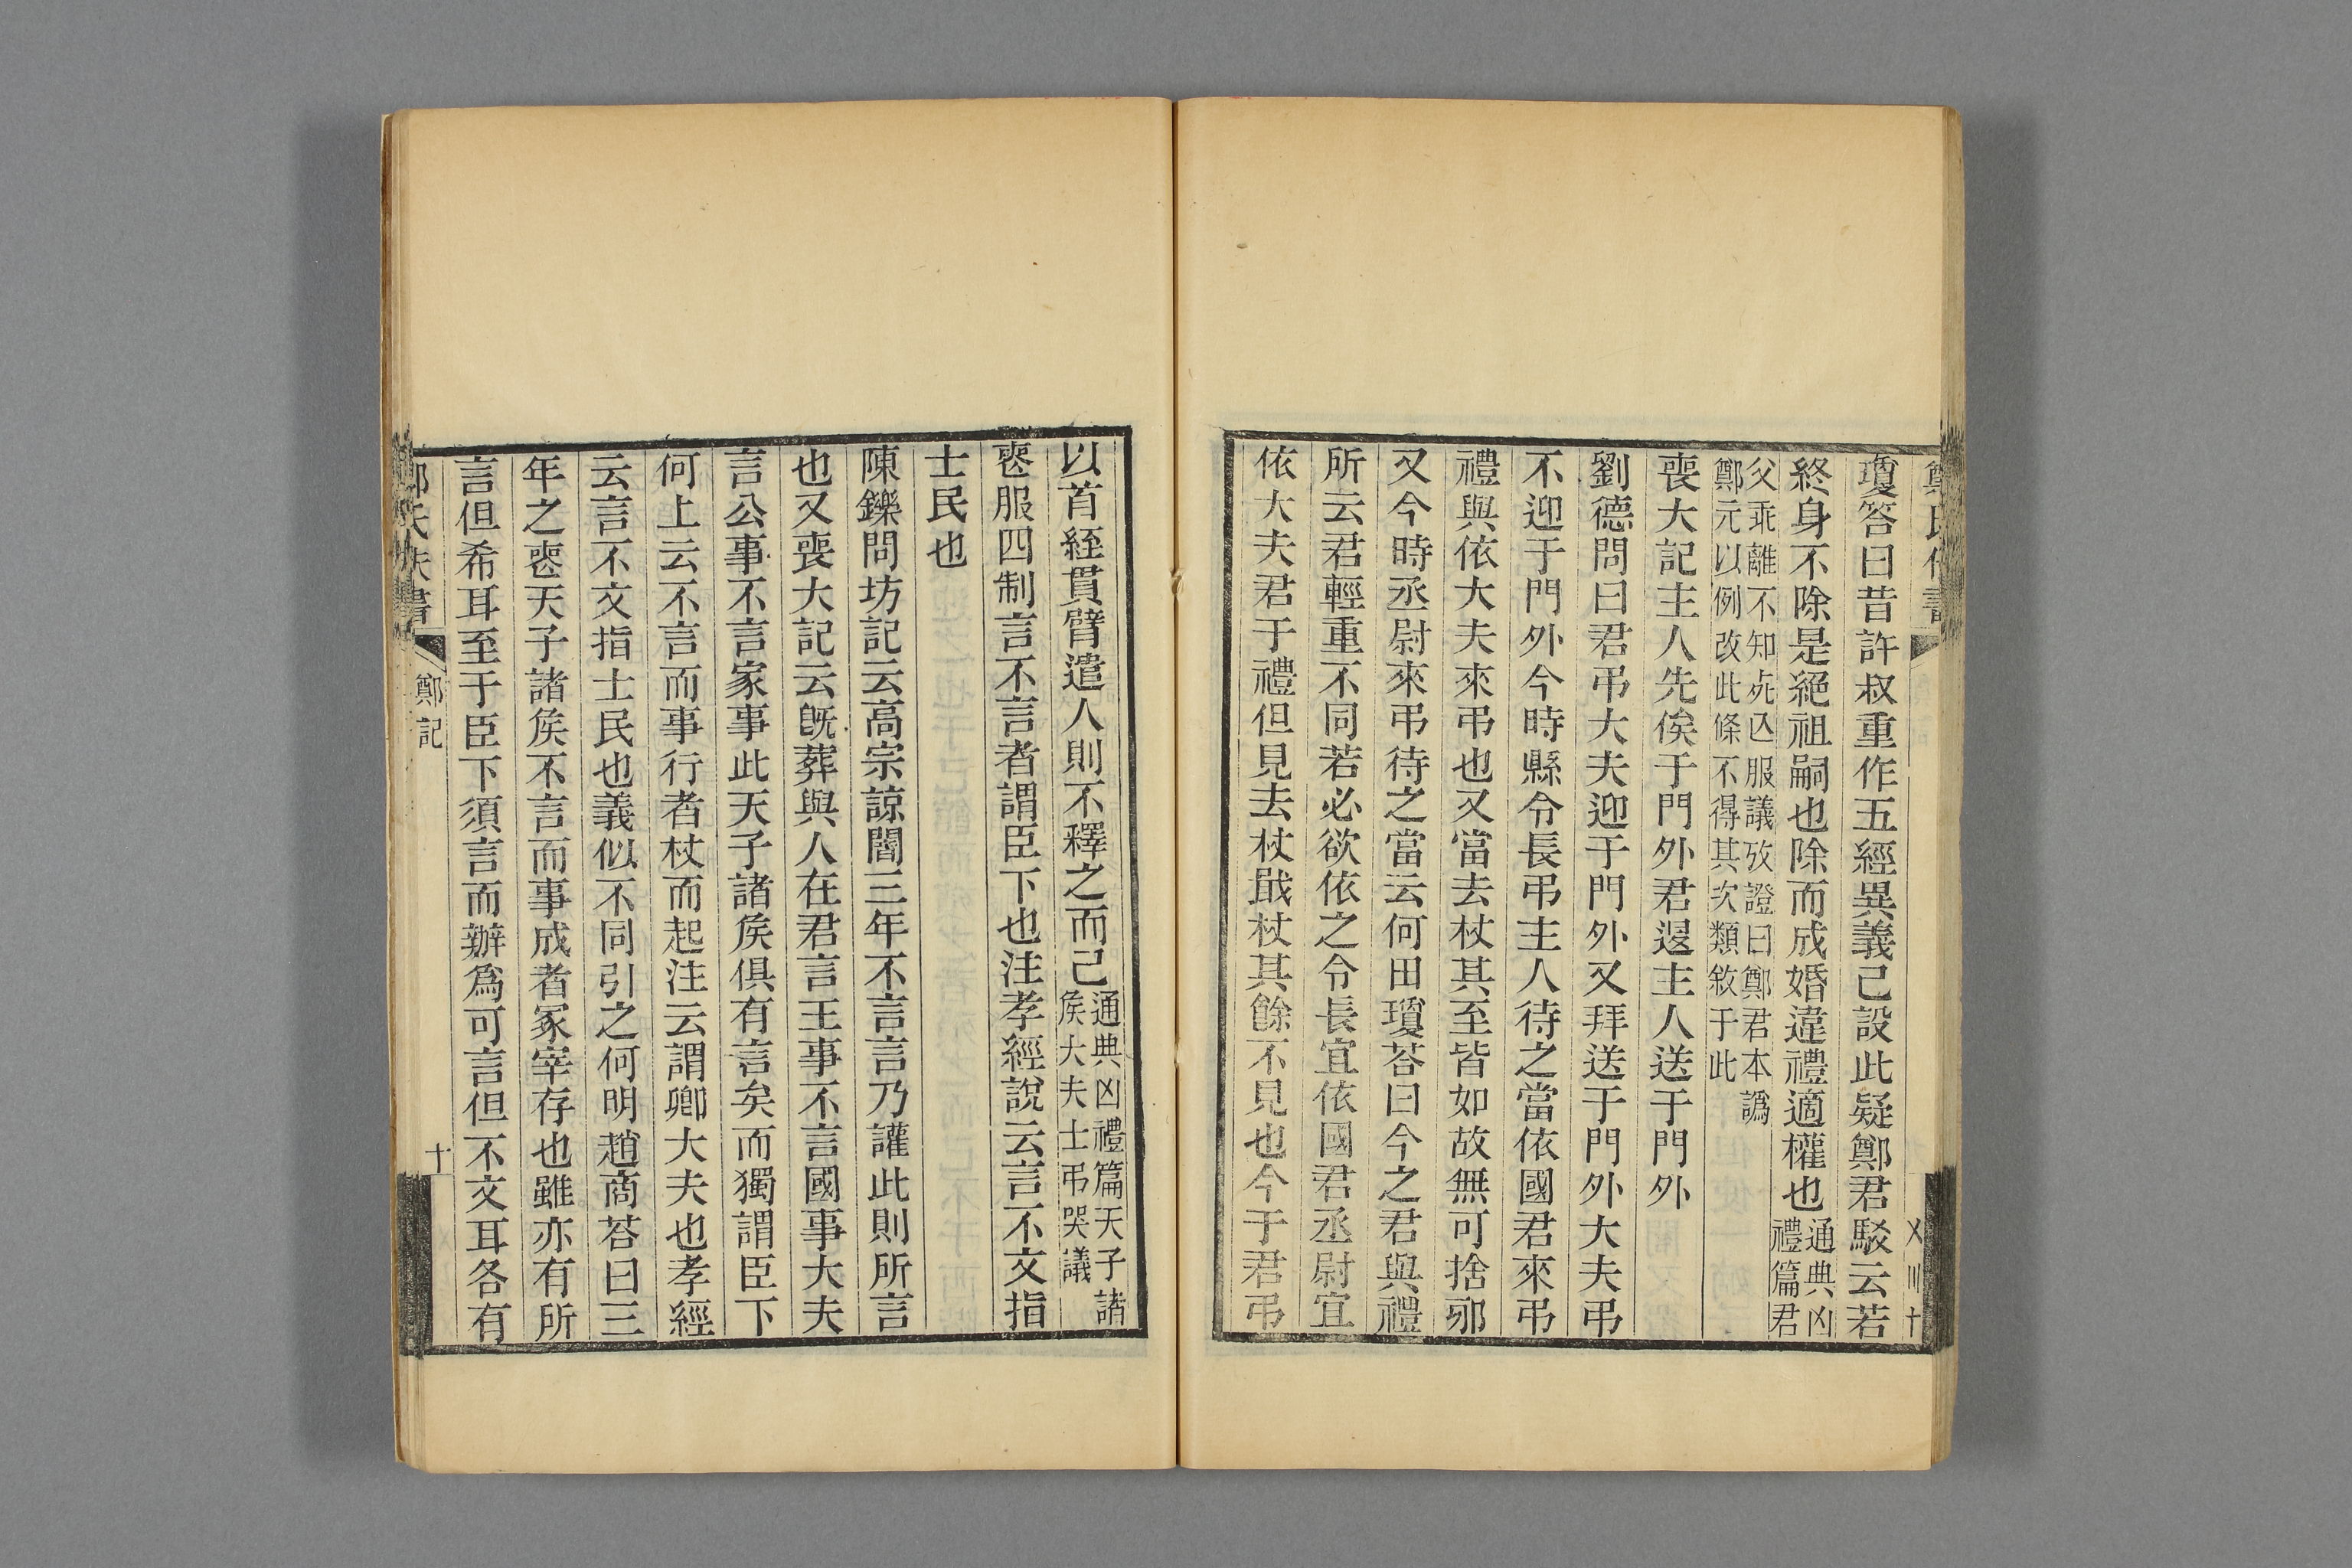 瓊答曰昔許叔重作五經異義已設此疑鄭君駁云若
終身不除是絕祖嗣也除而成婚違禮適權也通典凶禮篇君
父乖離不知死亾服議攷證曰鄭君本譌
鄭元以例改此條不得其次類敘于此
喪大記主人先俟于門外君退主人送于門外
劉德問曰君弔大夫迎于門外又拜送于門外大夫弔
不迎于門外今時縣令長弔主人待之當依國君來弔
禮與依大夫來弔也又當去杖其至皆如故無可捨邪
又今時丞尉來弔待之當云何田瓊荅曰今之君與禮
所云君輕重不同若必欲依之令長宜依國君丞尉宜
依大夫君于禮但見去杖戢杖其餘不見也今于君弔
以首絰貫臂遣人則不釋之而已通典凶禮篇天子諸
矦大夫士弔哭議
喪服四制言不言者謂臣下也注孝經說云言不文指
士民也
陳鑠問坊記云高宗諒闇三年不言言乃讙此則所言
也又喪大記云旣葬與人在君言王事不言國事大夫
言公事不言家事此天子諸矦俱有言矣而獨謂臣下
何上云不言而事行者杖而起注云謂卿大夫也孝經
云言不文指士民也義似不同引之何明趙商荅曰三
年之喪天子諸矦不言而事成者冢宰存也雖亦有所
言但希耳至于臣下須言而辦爲可言但不文耳各有
鄭記
十